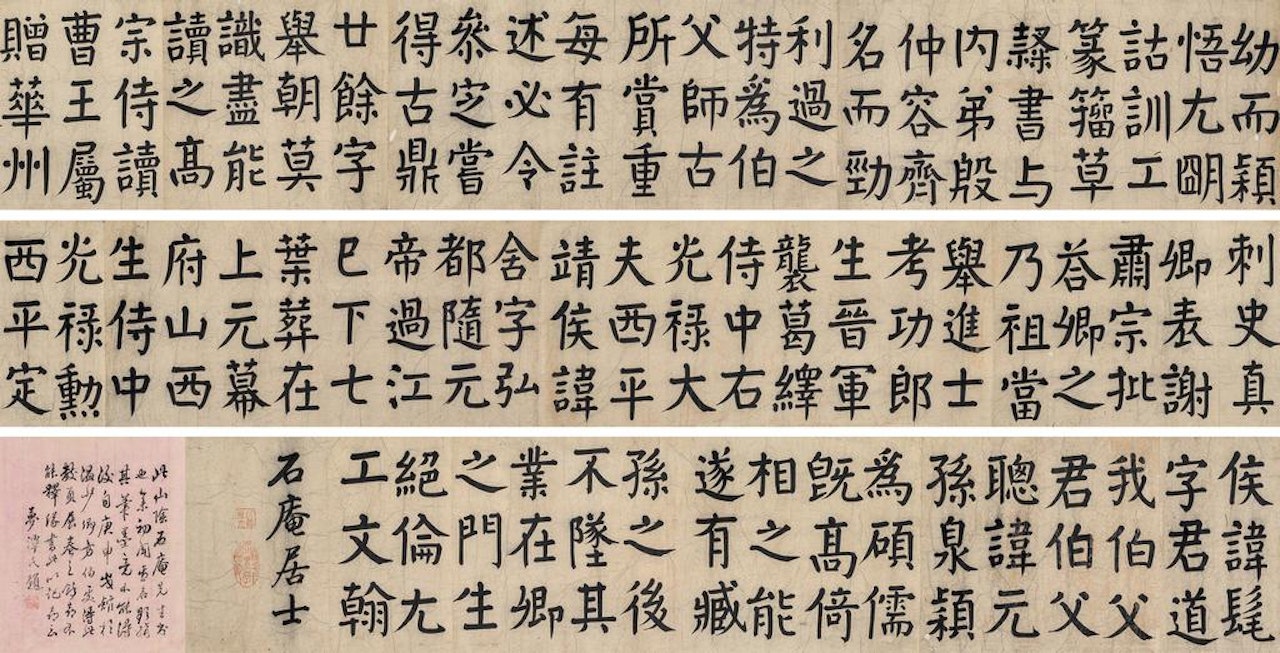 幼而穎
悟尤朙
詁訓工
篆籀草
隸書与
内弟殷
仲容齊
名而勁
利過之
特爲伯
父師古
所賞重
每有註
述必令
叅定嘗
得古鼎
廿餘字
舉朝莫
識盡能
讀之髙
宗侍讀
曹王屬
贈華州
刺史真
卿表謝
肅宗批
荅卿之
乃祖當
舉進士
考功郎
生晉軍
襲葛繹
侍中右
光禄大
夫西平
靖侯諱
舍字弘
都隨元
帝過江
巳下七
葉葬在
上元幕
府山西
生侍中
光禄勲
西平定
侯諱髦
字君道
我伯父
君伯父
聰諱元
孫泉穎
爲碩儒
既髙倚
相之能
遂有臧
孫之後
不墜其
業在卿
之門生
絕倫尤
工文翰
石庵居士
此山陰石庵先生書